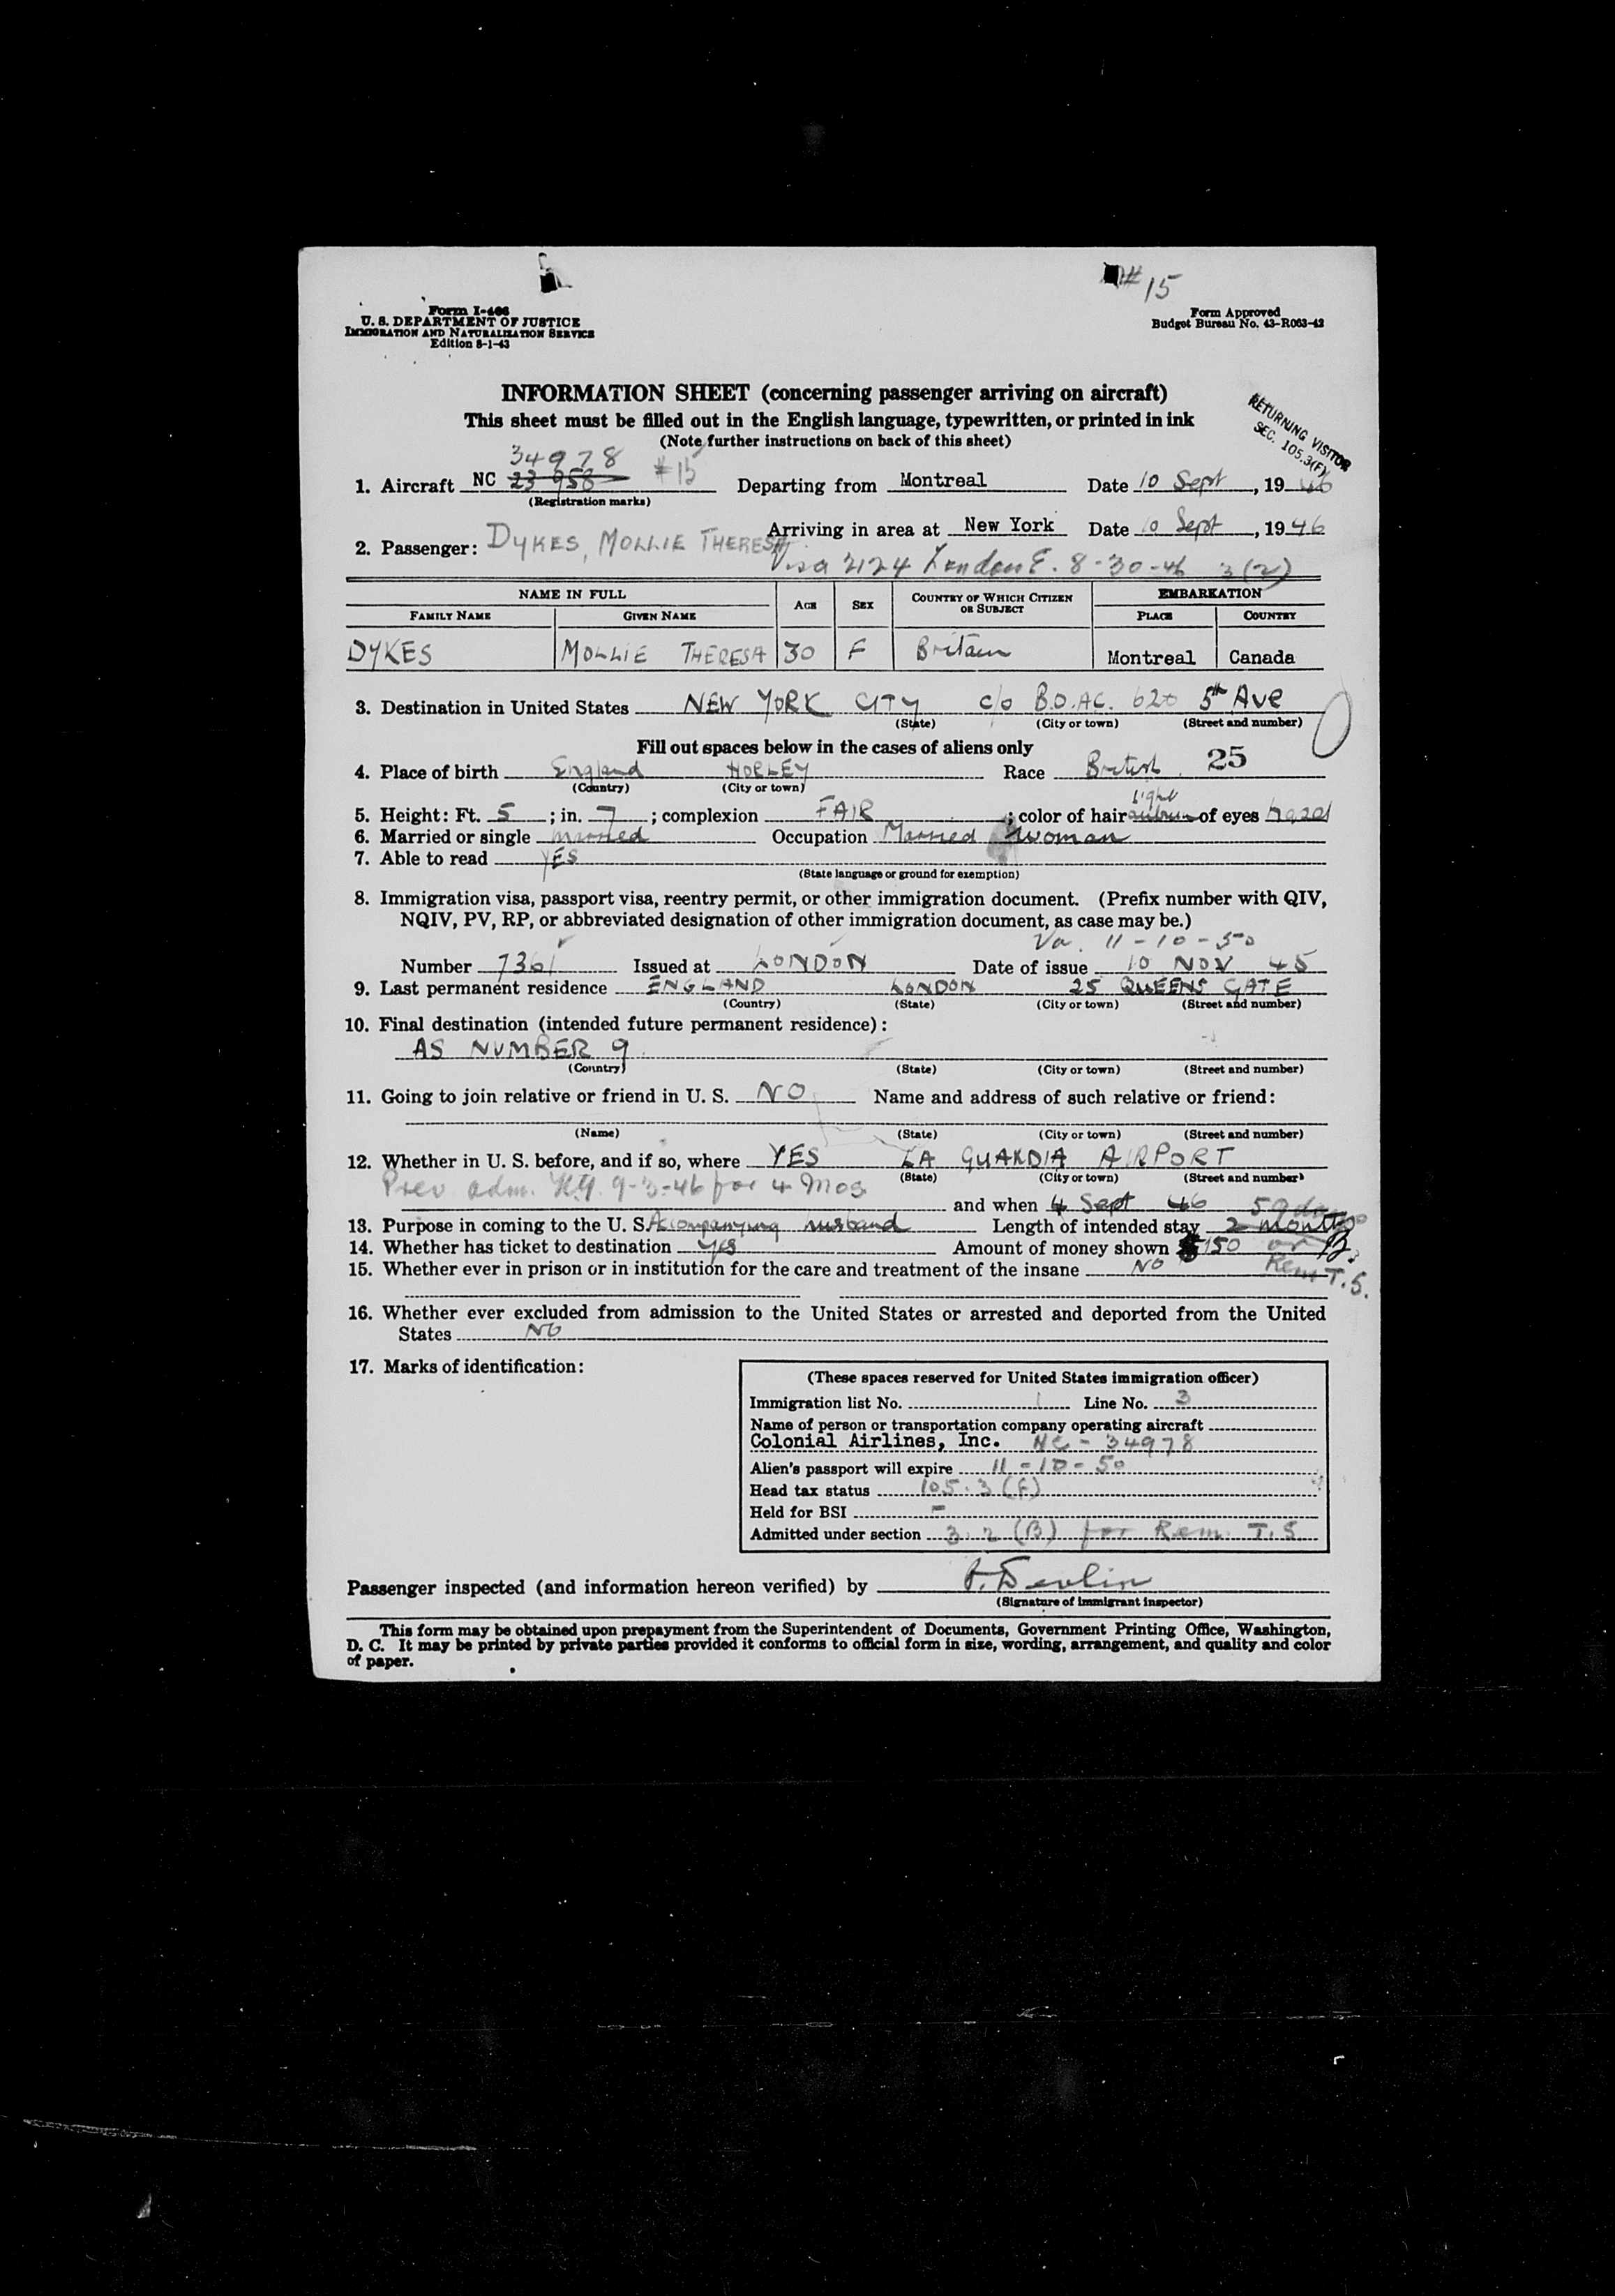 # 15
Form I-466
U. S. DEPARTMENT OF JUSTICE
IMMIGRATION AND NATURALIZATION SERVICE
Edition 8-1-43
Form Approved
Budget Bureau No. 43-R063-42
INFORMATION SHEET (concerning passenger arriving on aircraft)
This sheet must be filled out in the English language, typewritten, or printed in ink
(Note further instructions on back of this sheet)
RETURNING VISITOR
SEC. 105.3(F)
34978
1. Aircraft NC 23958 #15 Departing from Montreal Date 10 Sept, 1946
(Registration marks)
Arriving in area at New York Date 10 Sept, 1946
2. Passenger: DYKES, MOLLIE THERESA
Visa 2124 London E. 8-30-46 3(2)
NAME IN FULL AGE SEX COUNTRY OF WHICH CITIZEN OR SUBJECT EMBARKATION
FAMILY NAME GIVEN NAME PLACE COUNTRY
DYKES MOLLIE THERESA 30 F Britain Montreal Canada
3. Destination in United States NEW YORK CITY c/o B.O.A.C. 620 5th Ave
(State) (City or town) (Street and number)
Fill out spaces below in the cases of aliens only
25
4. Place of birth England HORLEY Race British
(Country) (City or town)
light
5. Height: Ft. 5; in. 7; complexion FAIR; color of hair auburn of eyes hazel
6. Married or single married Occupation Married woman
7. Able to read YES
(State language or ground for exemption)
8. Immigration visa, passport visa, reentry permit, or other immigration document. (Prefix number with QIV,
NQIV, PV, RP, or abbreviated designation of other immigration document, as case may be.)
Va. 11-10-50
Number 7361 Issued at LONDON Date of issue 10 NOV 45
9. Last permanent residence ENGLAND LONDON 25 QUEENS GATE
(Country) (State) (City or town) (Street and number)
10. Final destination (intended future permanent residence):
AS NUMBER 9
(Country) (State) (City or town) (Street and number)
11. Going to join relative or friend in U. S. NO Name and address of such relative or friend:
(Name) (State) (City or town) (Street and number)
12. Whether in U. S. before, and if so, where YES LA GUARDIA AIRPORT
(State) (City or town) (Street and number)
Prev adm. NY. 9-3-46 for 4 Mos.
and when 4 Sept 46 59 days
13. Purpose in coming to the U. S. Accompanying husband Length of intended stay 2 months
14. Whether has ticket to destination yes Amount of money shown $150 or B.
15. Whether ever in prison or in institution for the care and treatment of the insane NO Rem T.S.
16. Whether ever excluded from admission to the United States or arrested and deported from the United
States NO
17. Marks of identification:
(These spaces reserved for United States immigration officer)
Immigration list No. 1 Line No. 3
Name of person or transportation company operating aircraft
Colonial Airlines, Inc. NC-34978
Alien's passport will expire 11-10-50
Head tax status 105.3 (F)
Held for BSI -
Admitted under section 3.2 (B) for Rem. T.S
Passenger inspected (and information hereon verified) by P. Devlin
(Signature of immigrant inspector)
This form may be obtained upon prepayment from the Superintendent of Documents, Government Printing Office, Washington,
D. C. It may be printed by private parties provided it conforms to official form in size, wording, arrangement, and quality and color
of paper.